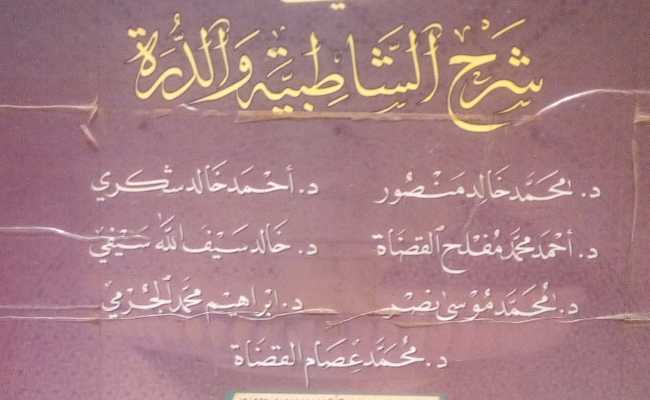 شرح الشاطبية والدرة
د. محمد خالد منصور د. أحمد خالد شكري
د. أحمد محمد مفلح القضاة د. خالد سيف الله سيفي
د. محمد موسى نصر د. إبراهيم محمد الجرمي
د. محمد عصام القضاة